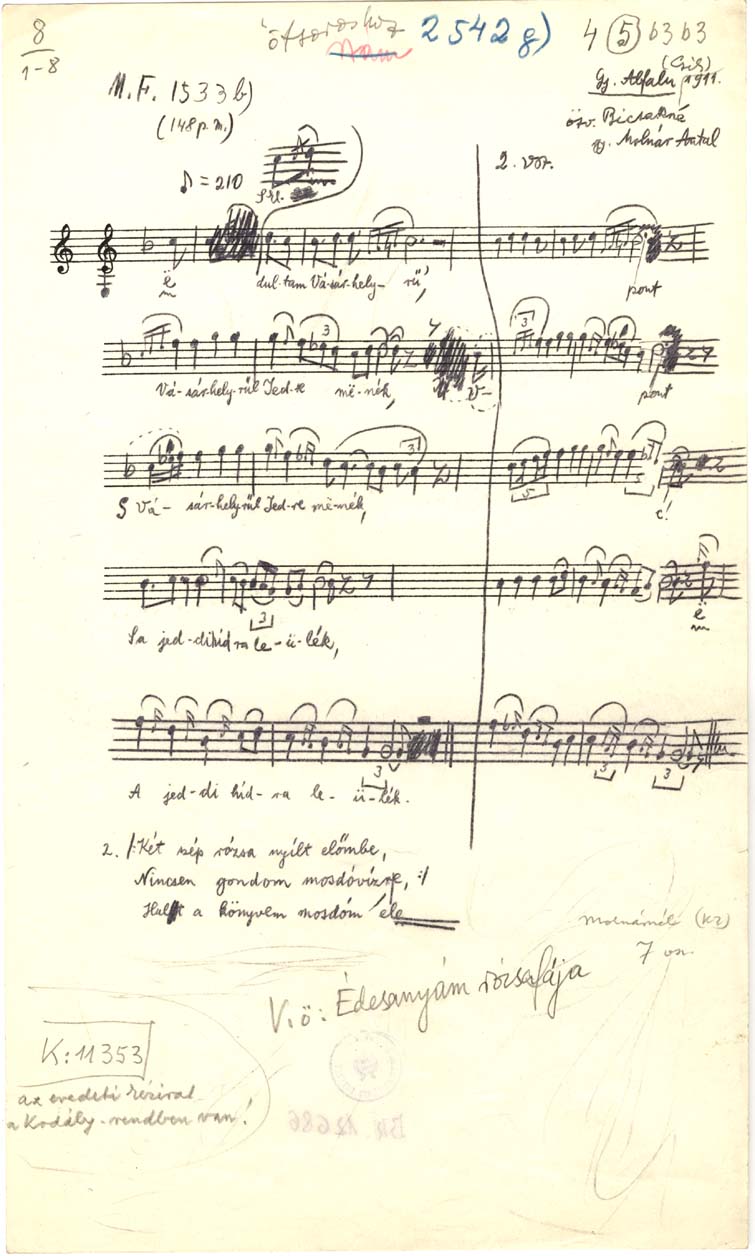 8
1-8
ötsoroshoz
2542g)
4 5 b3 b3
M.F. 1533 b)
(148 p.m.)
Gy. Alfalu (Csík) 1911.
özv. Bicsakné
gy. Molnár Antal
♪ = 210
2. vsz.
Ë dul-tam Vá-sár-hely-rű,
pont
Vá-sár-hely-rűl Jed-re më-nék,
V-
pont
S Vá-sár-hely-rűl Jed-re më-nék,
Sa jed-di híd ra le-ü-lék,
Ë
A jed-di híd-ra le-ü-lék.
2. /:Két szép rózsa nyílt előmbe,
Nincsen gondom mosdóvízre, :/
Hullt a könyvem mosdóm
Molnárnál (Kz)
7 vsz.
V.ö: Édesanyám rózsafája
K: 11353
az eredeti kézirat
a Kodály-rendben van!
BR 12686